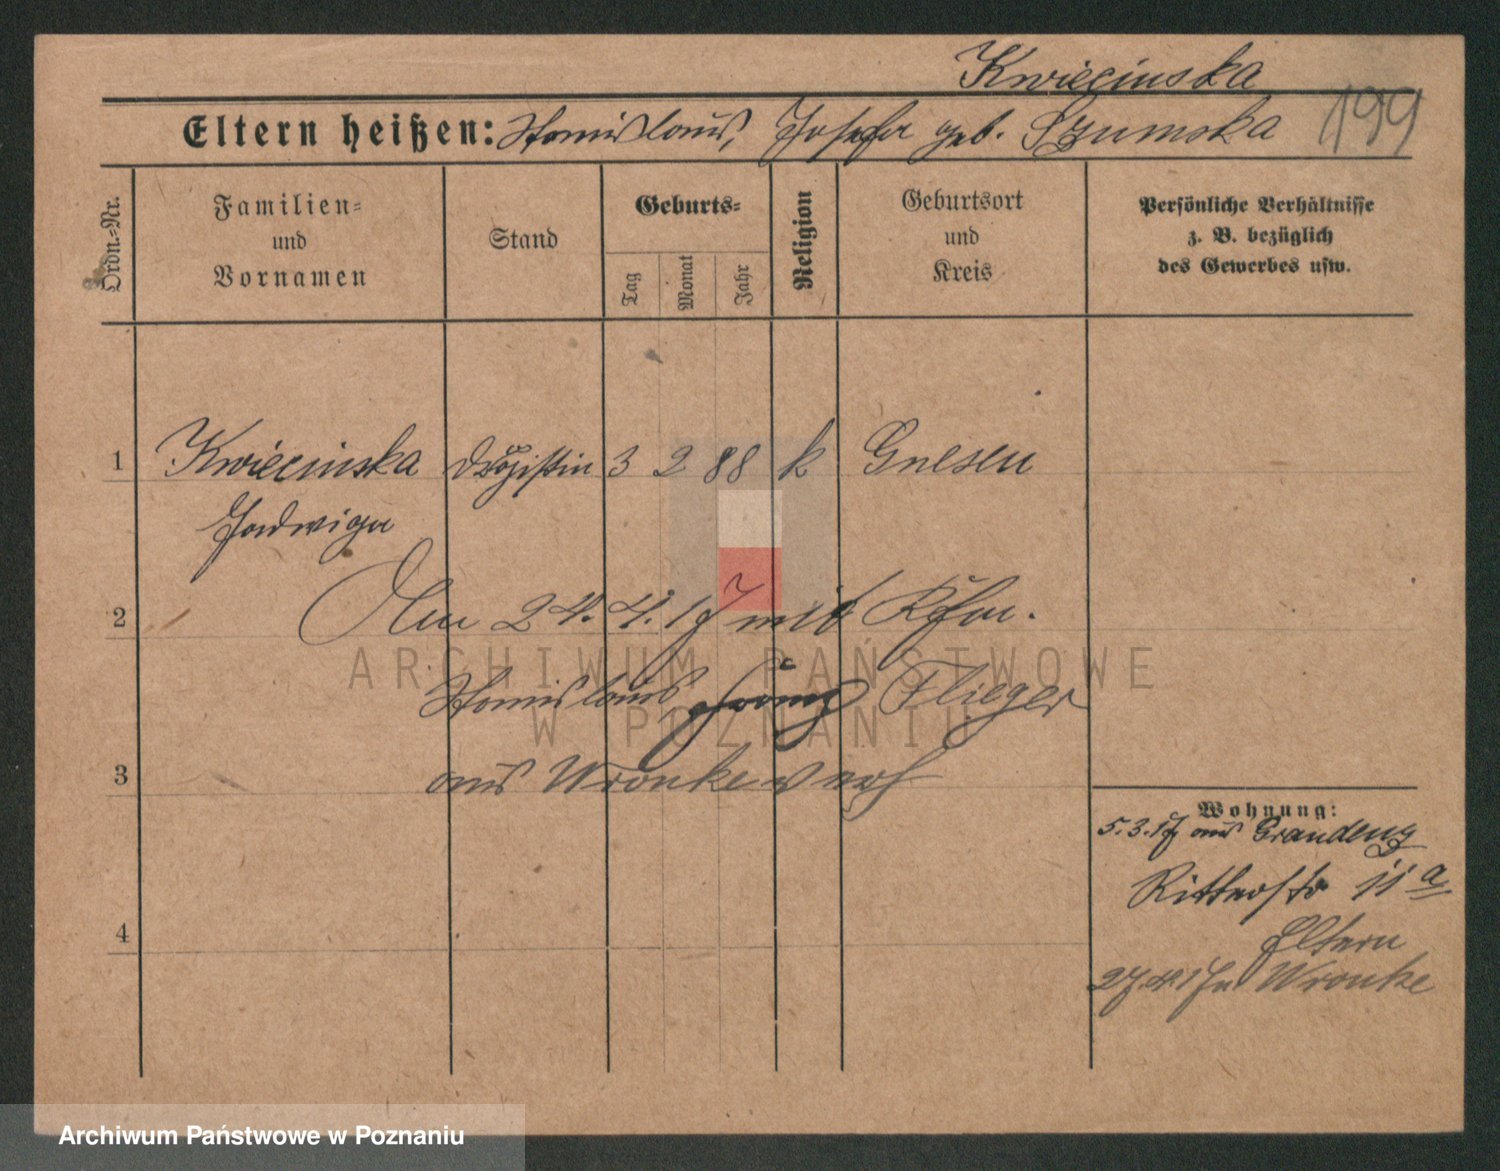 Kwiecinska
Eltern heißen: Stanislaus, Josefa geb. Szumska
199
Ordn.=Nr.
Familien=
und
Vornamen
Stand
Geburts=
Tag
Monat
Jahr
Religion
Geburtsort
und
Kreis
Persönliche Verhältnisse
z. B. bezüglich
des Gewerbes usw.
1 Kwiecinska Drogistin 3 2 88 k Gnesen
Jadwiga
2 Am 24. 4. 17 mit Kfm.
Stanislaus Flieger
3 aus Wronke verh
4
Wohnung:
5.3.17 aus Graudenz
Ritterstr 11 a
Eltern
27.4.17 n Wronke
ARCHIWUM PAŃSTWOWE
W POZNANIU
Archiwum Państwowe w Poznaniu